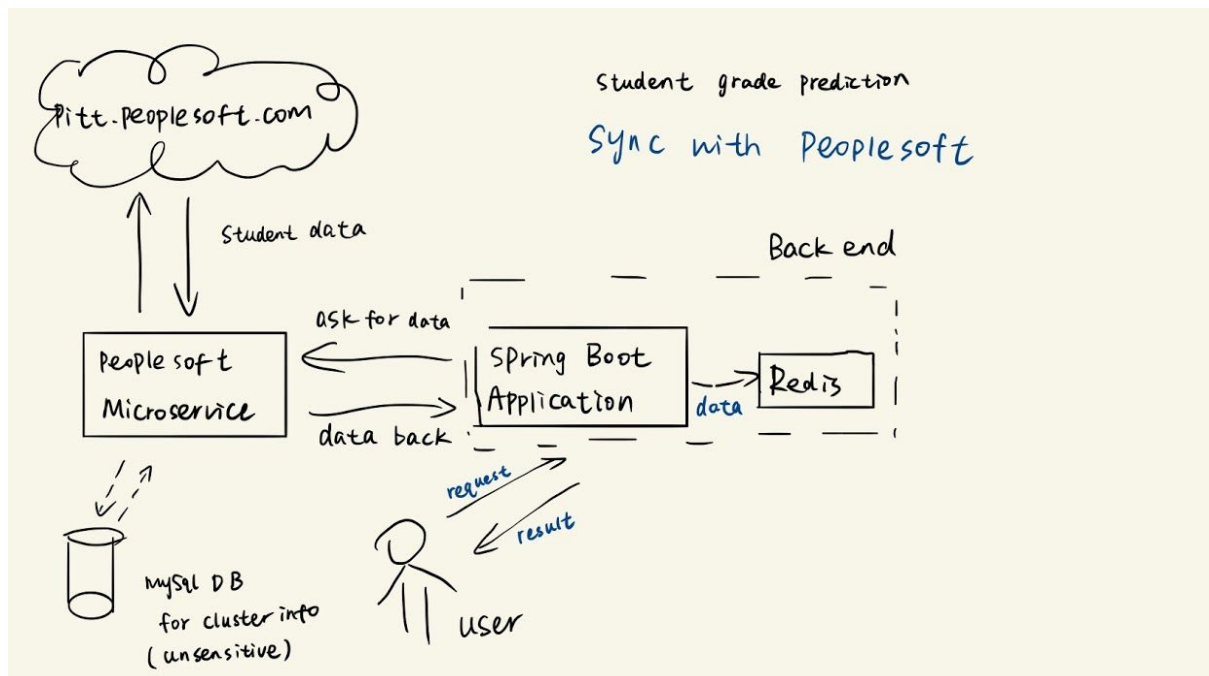 Pitt.peoplesoft.com
Student grade prediction
Sync with Peoplesoft
Student data
Back end
ask for data
Peoplesoft
Microservice
Spring Boot
Application
Redis
data
data back
request
result
MySql DB
for cluster info
(unsensitive)
user